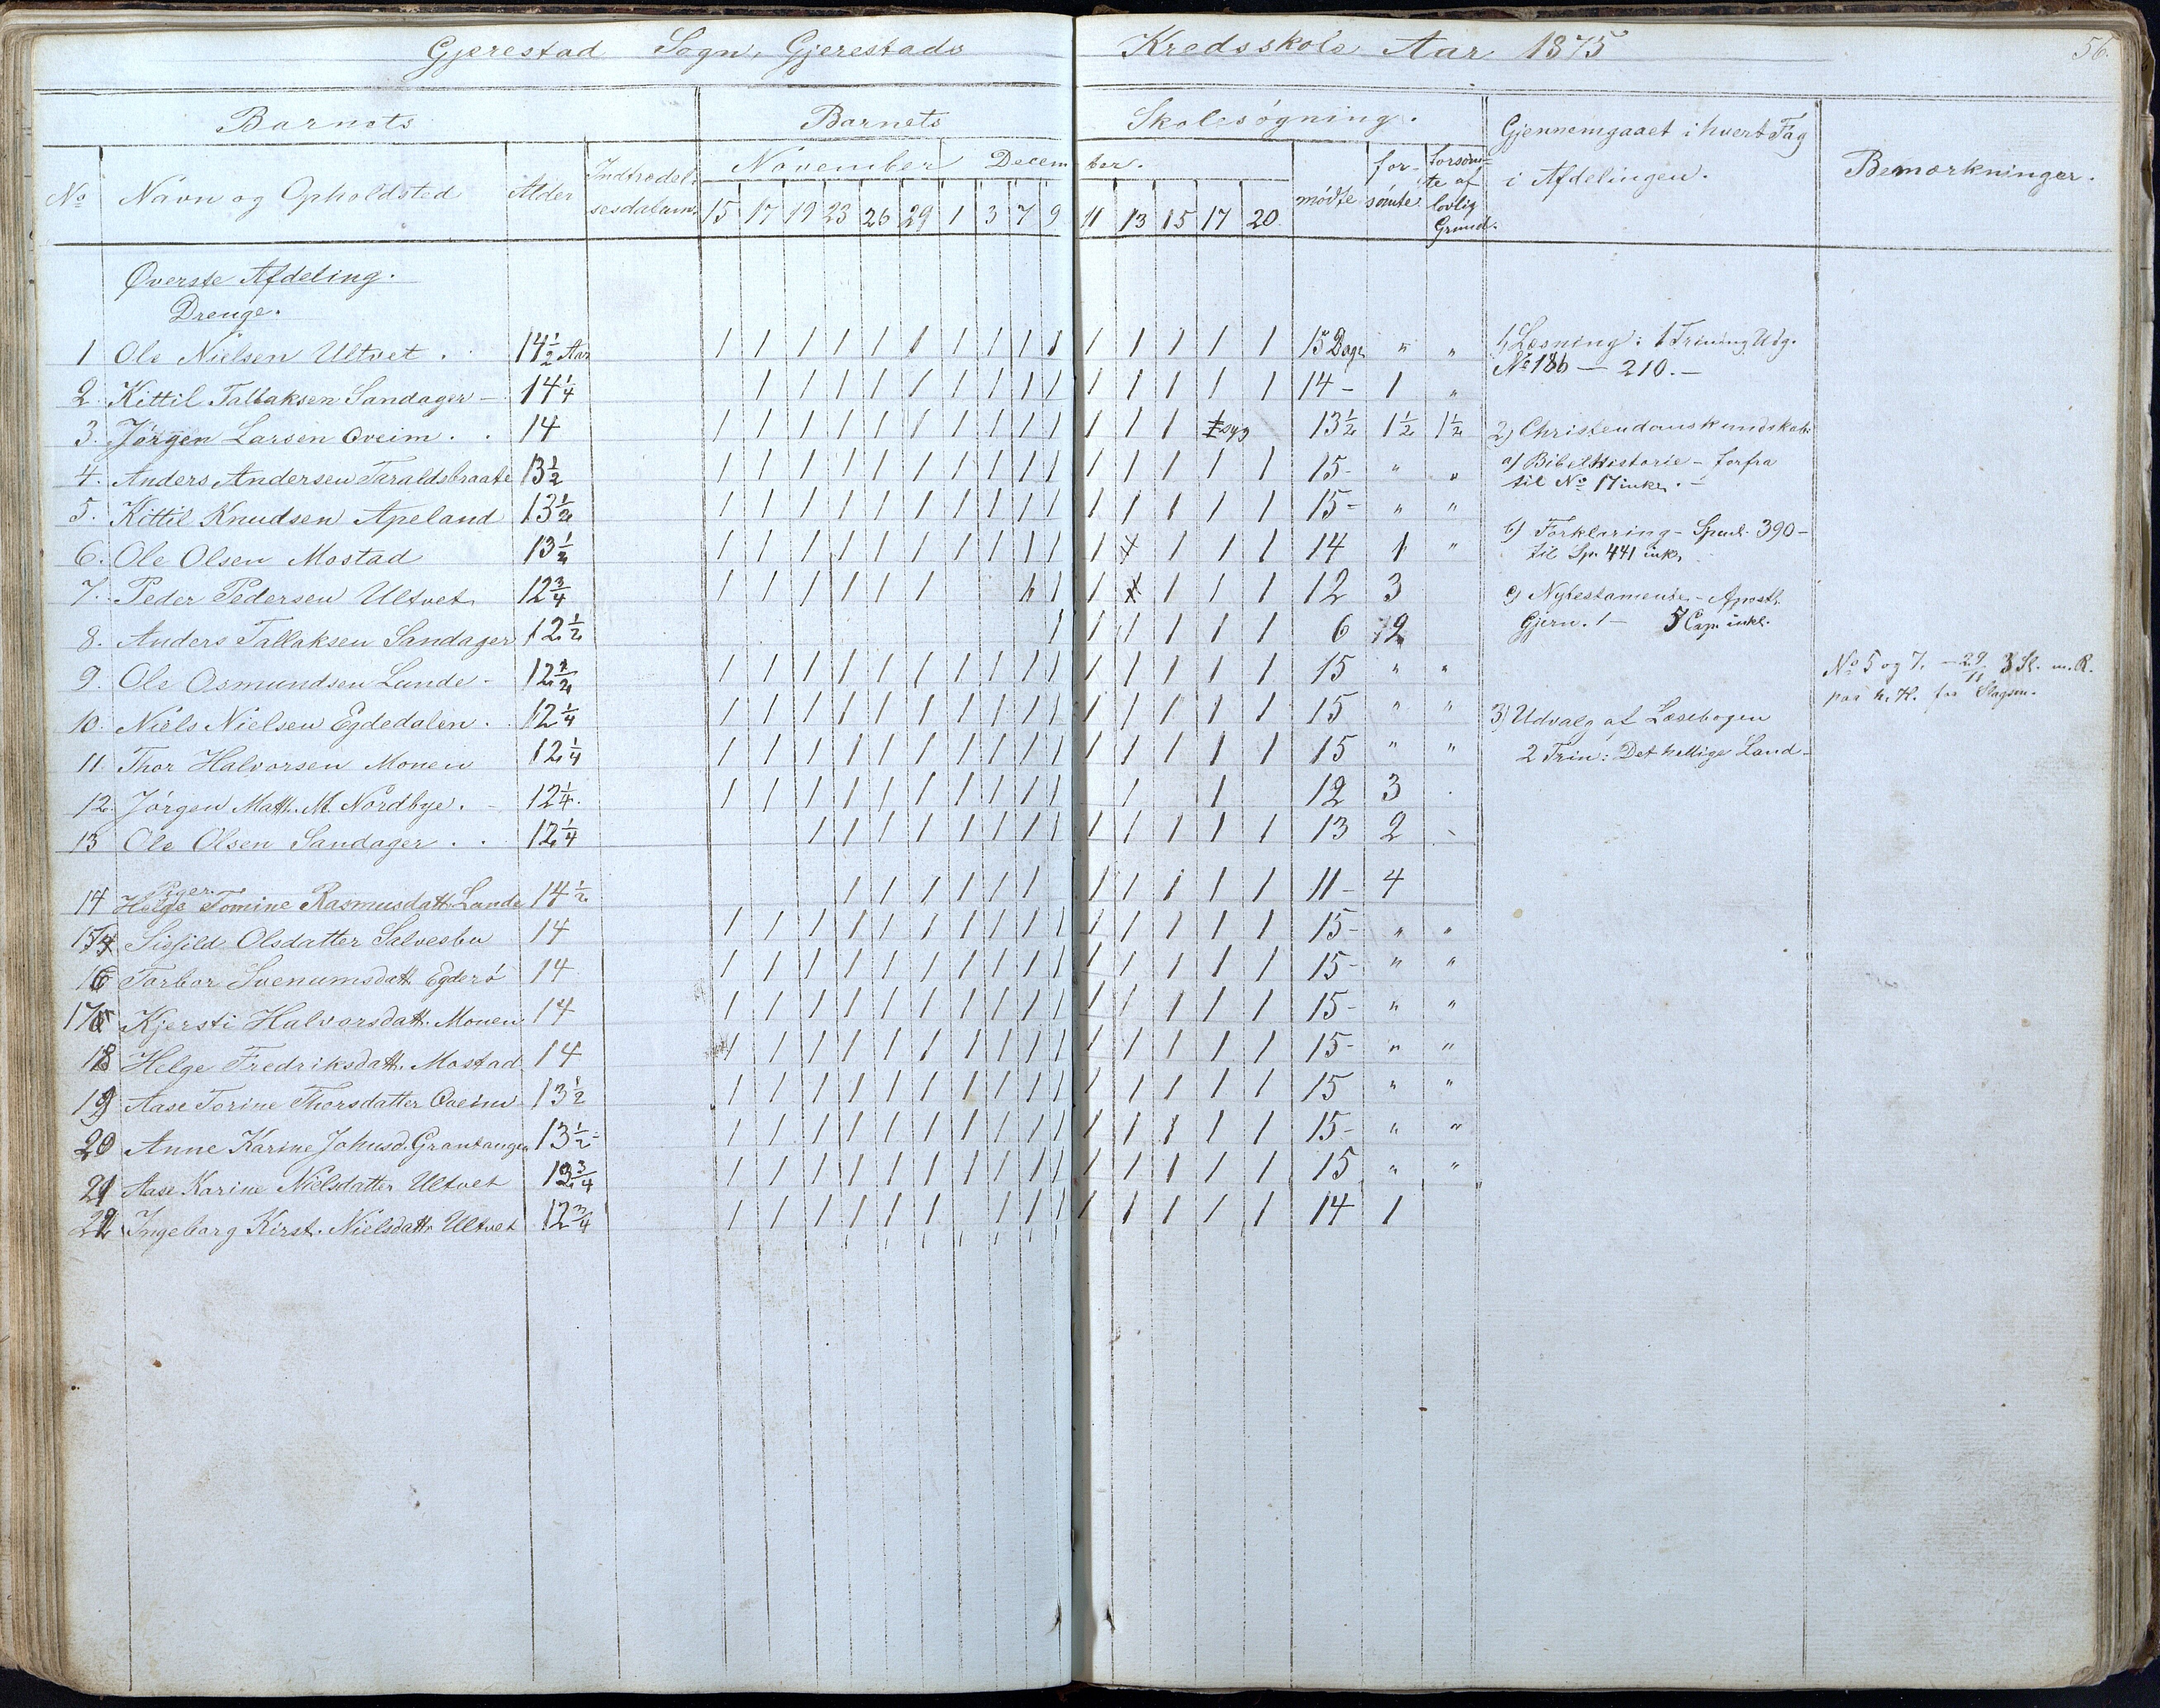 Gjerestad Sogn, Gjerestads Kredsskole Aar 1875
56.
Barnets
Barnets Skolesøgning.
Gjennemgaaet i hvert Fag i Afdelingen.
Bemærkninger.
No Navn og Opholdsted Alder Indtrædelsesdatum.
November December.
15 17 19 23 26 29 1 3 7 9 11 13 15 17 20
mødte forsømte forsømte af lovlig Grund.
Øverste Afdeling.
Drenge.
1 Ole Nielsen Ultvet . 14 1/2 Aar 1 1 1 1 1 1 1 1 1 1 1 1 1 1 1 15 Dage " "
2. Kittil Tallaksen Sandager – 14 1/4 1 1 1 1 1 1 1 1 1 1 1 1 1 1 14 – 1 "
3. Jørgen Larsen Oveim . . 14 1 1 1 1 1 1 1 1 1 1 1 1 1 syg 13 1/2 1 1/2 1 1/2
4. Anders Andersen Taraldsbraate 13 1/2 1 1 1 1 1 1 1 1 1 1 1 1 1 1 1 15 - " "
5. Kittil Knudsen Apeland 13 1/2 1 1 1 1 1 1 1 1 1 1 1 1 1 1 1 15 - " "
6. Ole Olsen Mostad 13 1/2 1 1 1 1 1 1 1 1 1 1 1 1 1 1 14 1 "
7. Peder Pedersen Ultvet 12 3/4 1 1 1 1 1 1 1 1 1 1 1 12 3
8. Anders Tallaksen Sandager 12 1/2 1 1 1 1 1 1 6
9. Ole Osmundsen Lunde - 1 1 1 1 1 1 1 1 1 1 1 1 1 1 1 15 " "
10. Niels Nielsen Egdedalen . 12 1/4 1 1 1 1 1 1 1 1 1 1 1 1 1 1 1 15 " "
11. Thor Halvorsen Monen 12 1/4 1 1 1 1 1 1 1 1 1 1 1 1 1 1 1 15 " "
12. Jørgen Math. M. Nordbye. - 12 1/4. 1 1 1 1 1 1 1 1 1 1 1 1 12 3
13 Ole Olsen Sandager . . 12 1/4 1 1 1 1 1 1 1 1 1 1 1 1 1 13 2
Piger.
14 Helge Tomine Rasmusdatt. Lunde 14 1/2 1 1 1 1 1 1 1 1 1 1 1 11 – 4
15 Sigfild Olsdatter Salvesbu 14 1 1 1 1 1 1 1 1 1 1 1 1 1 1 1 15 - " "
16 Torbor Svenumsdatt. Egderö 14 1 1 1 1 1 1 1 1 1 1 1 1 1 1 1 15 - " "
17 Kjersti Halvorsdatt. Monen 14 1 1 1 1 1 1 1 1 1 1 1 1 1 1 1 15 - " "
18 Helge Fredriksdatt. Mostad 14 1 1 1 1 1 1 1 1 1 1 1 1 1 1 1 15 - " "
19 Aase Torine Thorsdatter Oveim 13 1/2 1 1 1 1 1 1 1 1 1 1 1 1 1 1 1 15 " "
20 Anne Karine Johusd. Grantangen 13 1/2 1 1 1 1 1 1 1 1 1 1 1 1 1 1 1 15 - " "
21 Aase Karine Nielsdatter Ultvet 1 1 1 1 1 1 1 1 1 1 1 1 1 1 1 15 " "
22 Ingeborg Kirst. Nielsdatt. Ultvet 12 3/4 1 1 1 1 1 1 1 1 1 1 1 1 1 1 14 1
1, Læsning: 1 Trin ny Udg.
No 186 — 210. —
2, Christendomskundskab:
a) Bibelhistorie – forfra
til No 17 inkl. –
b) Forklaring – Spml. 390 –
til Sp. 441 inkl.
c) Nytestamente – Aposth.
Gjern. 1 – 5 Cap. inkl.
3) Udvalg af Læsebogen
2 Trin: Det hellige Land –
No 5 og 7. – 29/11